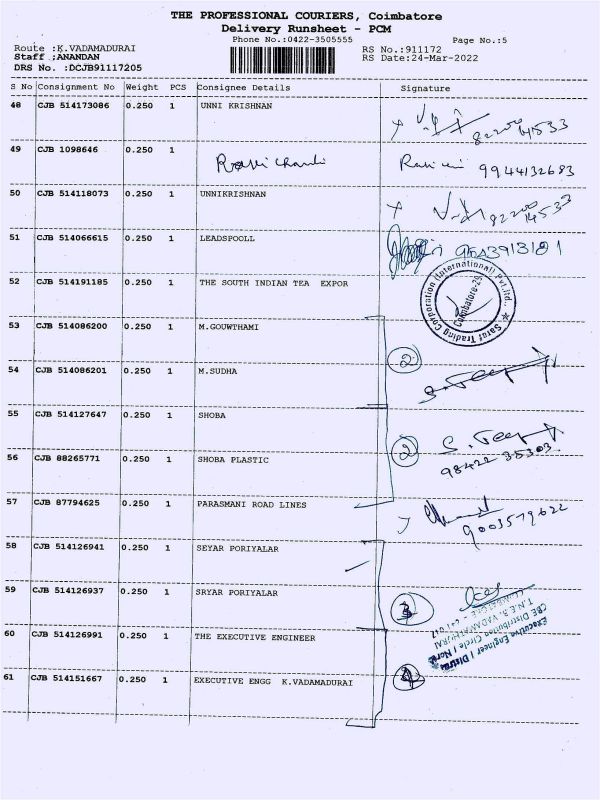 THE PROFESSIONAL COURIERS, Coimbatore
Delivery Runsheet - PCM
Phone No.:0422-3505555
Page No.:5
Route :K.VADAMADURAI
RS No.:911172
Staff :ANANDAN
RS Date:24-Mar-2022
DRS No. :DCJB91117205
S No Consignment No Weight PCS Consignee Details Signature
48 CJB 514173086 0.250 1 UNNI KRISHNAN
49 CJB 1098646 0.250 1 9944132683
50 CJB 514118073 0.250 1 UNNIKRISHNAN
51 CJB 514066615 0.250 1 LEADSPOOLL
52 CJB 514191185 0.250 1 THE SOUTH INDIAN TEA EXPOR
Saraf Trading Corporation (International) Pvt.Ltd., Coimbatore-29
53 CJB 514086200 0.250 1 M.GOUWTHAMI
2
54 CJB 514086201 0.250 1 M.SUDHA
55 CJB 514127647 0.250 1 SHOBA
2
98422 35303
56 CJB 88265771 0.250 1 SHOBA PLASTIC
57 CJB 87794625 0.250 1 PARASMANI ROAD LINES
9003579622
58 CJB 514126941 0.250 1 SEYAR PORIYALAR
59 CJB 514126937 0.250 1 SRYAR PORIYALAR
60 CJB 514126991 0.250 1 THE EXECUTIVE ENGINEER
Executive Engineer
CBE Distribution Circle
61 CJB 514151667 0.250 1 EXECUTIVE ENGG K.VADAMADURAI